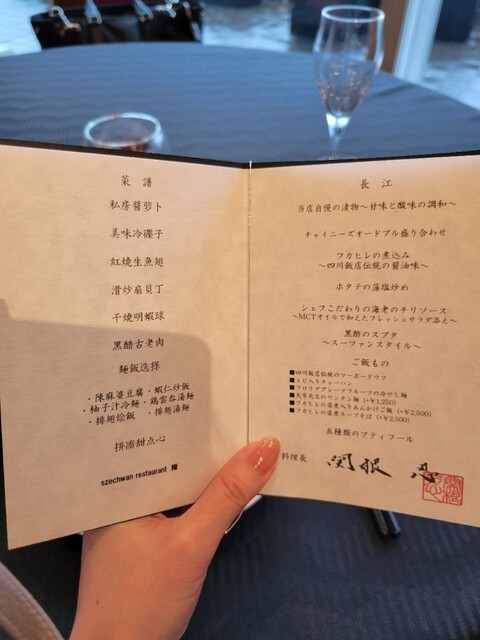 菜譜
私房醤萝卜
美味冷碟子
紅燒生魚翅
滑炒扇貝丁
干焼明蝦球
黒醋古老肉
麺飯选择
・陳麻婆豆腐・蝦仁炒飯
・柚子汁冷麺・鶏雲呑湯麺
・排翅烩飯・排翅湯麺
拼凑甜点心
szechwan restaurant 陳
長江
当店自慢の漬物～甘味と酸味の調和～
チャイニーズオードブル盛り合わせ
フカヒレの煮込み
～四川飯店伝統の醤油味～
ホタテの藻塩炒め
シェフこだわりの海老のチリソース
～MCTオイルで和えたフレッシュサラダ添え～
黒酢のスブタ
～スーツァンスタイル～
ご飯もの
■四川飯店伝統のマーボードウフ
■エビ入りチャーハン
■フロリダグレープフルーツの冷やし麺
■天草大王のワンタン麺（+￥1,250）
■フカヒレの姿煮入りあんかけご飯（+￥2,500）
■フカヒレの姿煮スープそば（+￥2,500）
五種類のプティフール
料理長 関根